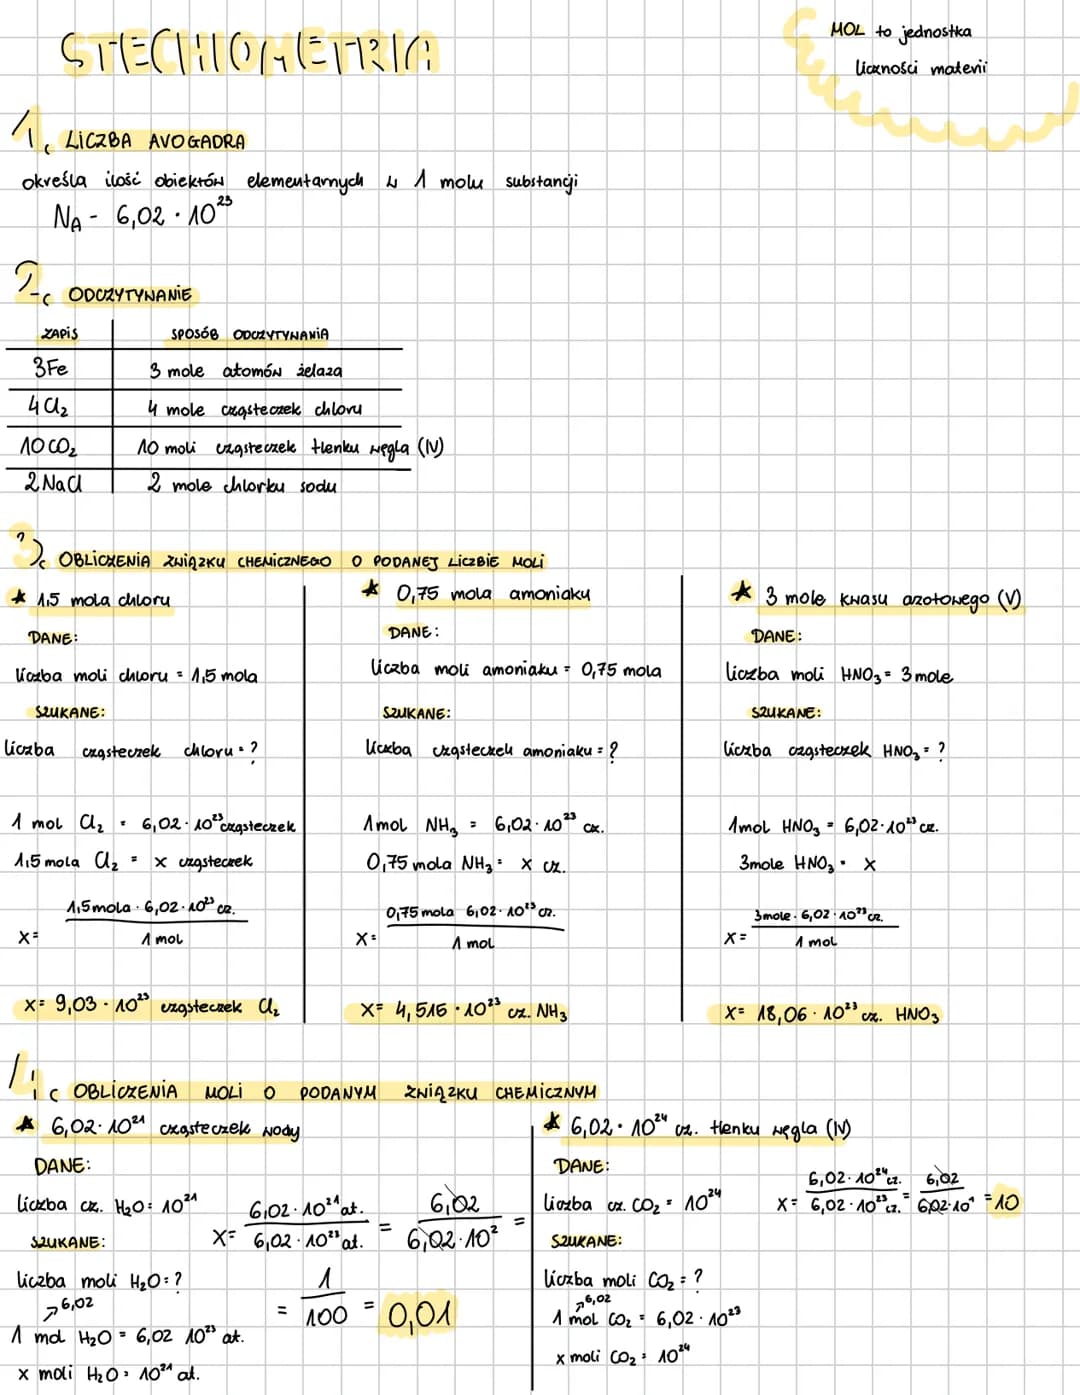 STECHIOMETRIA
MOL to jednostka
liczności materii
1. LICZBA AVOGADRA
określa ilość obiektów elementarnych w 1 molu substancji
N_A - 6,02 · 10²³
2. ODCZYTYWANIE
ZAPIS | SPOSÓB ODCZYTYWANIA
3Fe | 3 mole atomów żelaza
4Cl₂ | 4 mole cząsteczek chloru
10CO₂ | 10 moli cząsteczek tlenku węgla (IV)
2NaCl | 2 mole chlorku sodu
3. OBLICZENIA ZWIĄZKU CHEMICZNEGO O PODANEJ LICZBIE MOLI
* 1,5 mola chloru
DANE:
liczba moli chloru = 1,5 mola
SZUKANE:
liczba cząsteczek chloru = ?
1 mol Cl₂ = 6,02 · 10²³ cząsteczek
1,5 mola Cl₂ = x cząsteczek
x = 1,5 mola · 6,02 · 10²³ cz. / 1 mol
x = 9,03 · 10²³ cząsteczek Cl₂
* 0,75 mola amoniaku
DANE:
liczba moli amoniaku = 0,75 mola
SZUKANE:
liczba cząsteczek amoniaku = ?
1 mol NH₃ = 6,02 · 10²³ cz.
0,75 mola NH₃ = x cz.
x = 0,75 mola 6,02 · 10²³ cz. / 1 mol
x = 4,515 · 10²³ cz. NH₃
* 3 mole kwasu azotowego (V)
DANE:
liczba moli HNO₃ = 3 mole
SZUKANE:
liczba cząsteczek HNO₃ = ?
1 mol HNO₃ = 6,02 · 10²³ cz.
3 mole HNO₃ = x
x = 3 mole · 6,02 · 10²³ cz. / 1 mol
x = 18,06 · 10²³ cz. HNO₃
4. OBLICZENIA MOLI O PODANYM ZWIĄZKU CHEMICZNYM
* 6,02 · 10²¹ cząsteczek wody
DANE:
liczba cz. H₂O = 10²¹
SZUKANE:
liczba moli H₂O = ?
↗ 6,02
1 mol H₂O = 6,02 10²³ at.
x moli H₂O = 10²¹ at.
x = 6,02 · 10²¹ at. / 6,02 · 10²³ at. = 6,02 / 6,02 · 10² =
= 1 / 100 = 0,01
* 6,02 · 10²⁴ cz. tlenku węgla (IV)
DANE:
liczba cz. CO₂ = 10²⁴
SZUKANE:
liczba moli CO₂ = ?
↗ 6,02
1 mol CO₂ = 6,02 · 10²³
x moli CO₂ = 10²⁴
x = 6,02 · 10²⁴ cz. / 6,02 · 10²³ cz. = 6,02 / 6,02 · 10¹ = 10